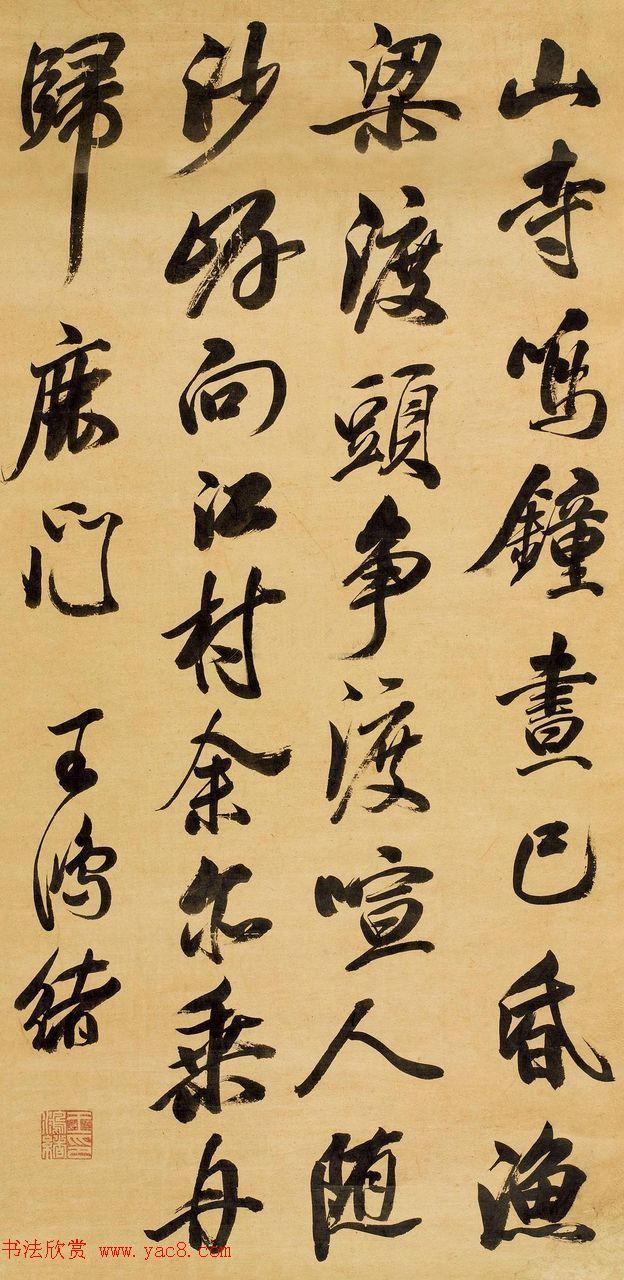 山寺鳴鐘晝已昏漁
梁渡頭争渡喧人随
沙岸向江村余亦乘舟
歸鹿門 王鴻緒
王印鴻緒
书法欣赏 www.yac8.com